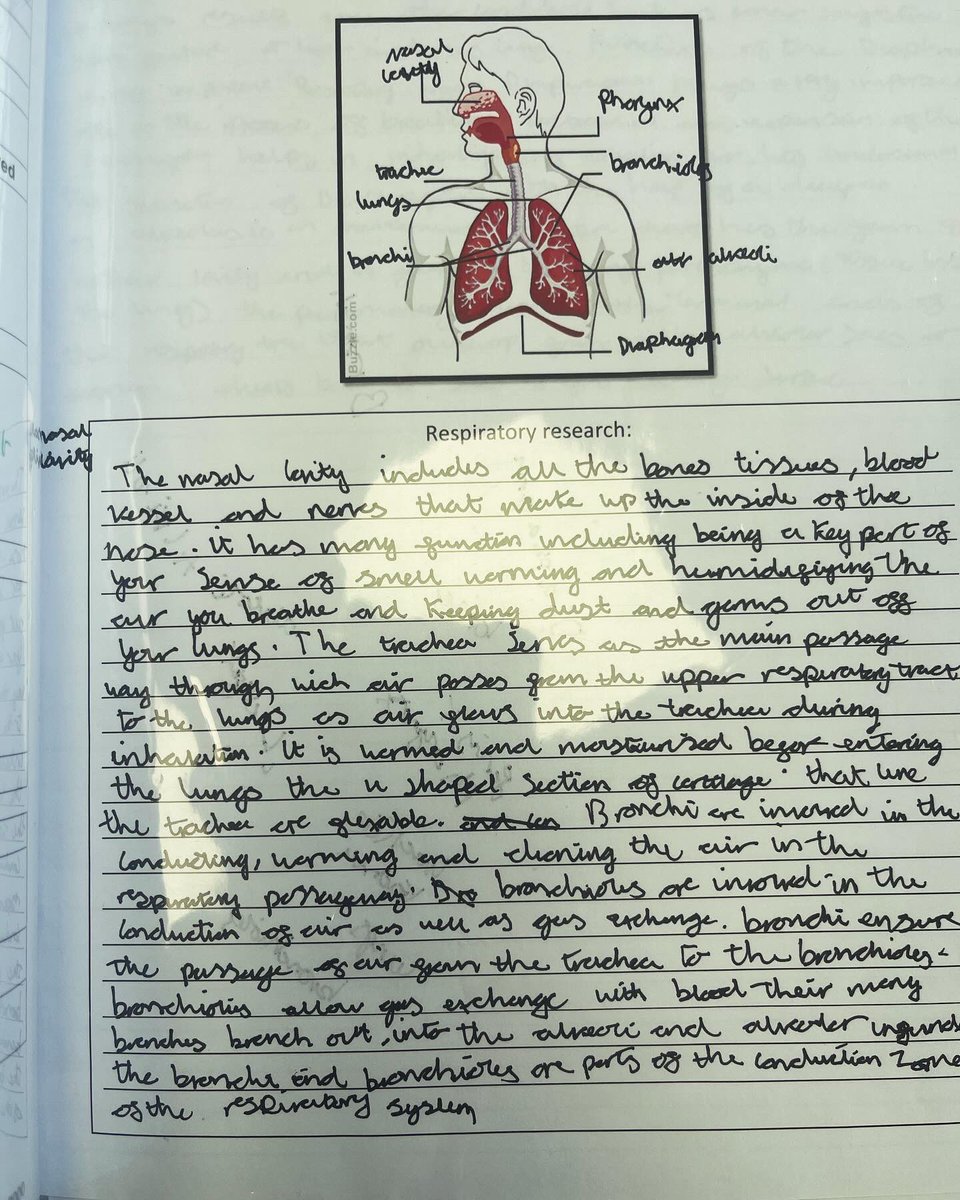 nasal
cavity
pharynx
bronchioles
trachee
lungs
bronchi
alveoli
Diaphagram
Buzzle.com
ed
nasal
cavity
Respiratory research:
The nasal cavity includes all the bones tissues, blood
vessel and nerves that make up the inside of the
nose. it has many function including being a key part of
your sense of smell warming and humidifiying the
air you breathe and keeping dust and germs out off
your lungs. The trachea serves as the main passage
way through wich air passes from the upper respiratory tract
to the lungs as air flows into the trachea during
inhalation. it is warmed and moisturised before entering
the lungs the u shaped section of cartilage. that line
the trachea are flexable. Bronchi are invoved in the
conducting, warming and cleaning the air in the
respiratory passageway. bronchioles are invoved in the
conduction of air as well as gas exchange. bronchi ensure
the passage of air from the trachea to the bronchioles.
bronchiolis allow gas exchange with blood their many
branches branch out, into the alveoli and alveolar
the bronchi and bronchioles are parts of the conduction zone
of the respiratory system